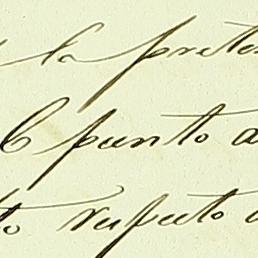 la prete
punto a
to respecto